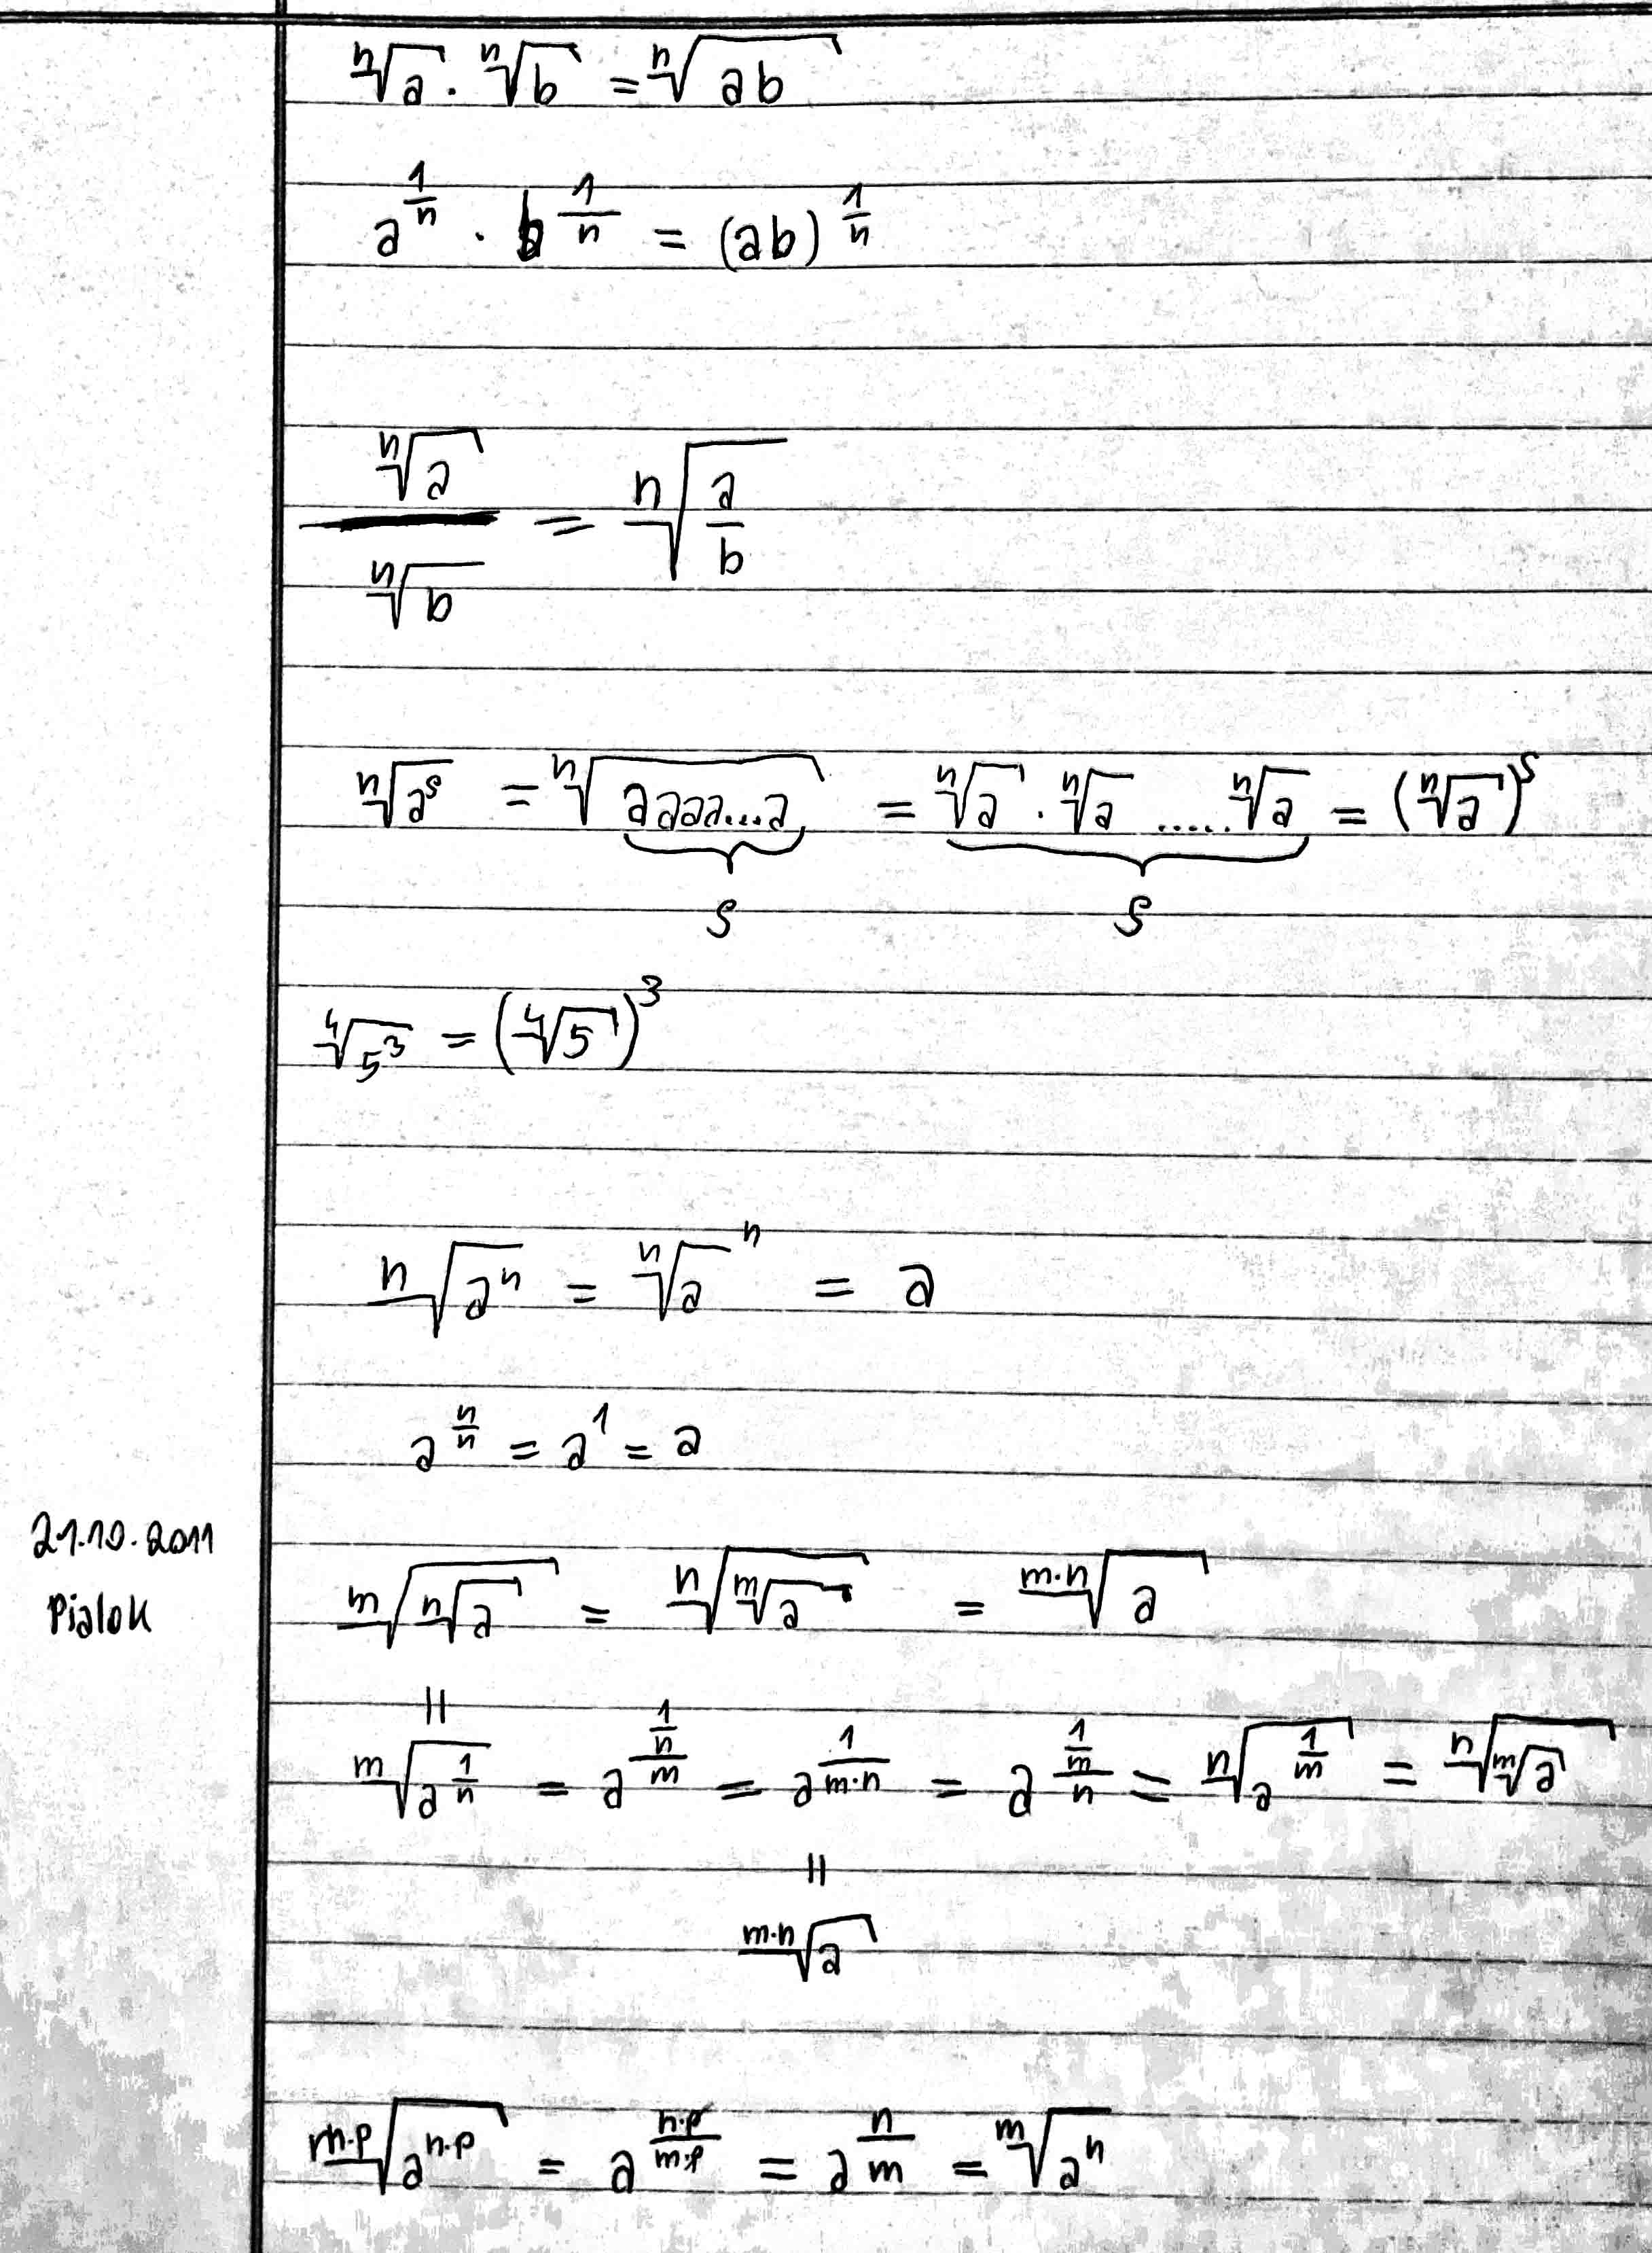 ⁿ√a · ⁿ√b = ⁿ√(ab)
a^(1/n) · b^(1/n) = (ab)^(1/n)
ⁿ√a / ⁿ√b = ⁿ√(a/b)
ⁿ√(a^s) = ⁿ√(aaaa...a) = ⁿ√a · ⁿ√a ..... ⁿ√a = (ⁿ√a)^s
s s
⁴√(5³) = (⁴√5)³
ⁿ√(aⁿ) = ⁿ√a ⁿ = a
a^(n/n) = a¹ = a
21.10.2011
Pialok
ᵐ√(ⁿ√a) = ⁿ√(ᵐ√a) = ᵐ·ⁿ√a
||
ᵐ√(a^(1/n)) = a^((1/n)/m) = a^(1/(m·n)) = a^((1/m)/n) = ⁿ√(a^(1/m)) = ⁿ√(ᵐ√a)
||
ᵐ·ⁿ√a
ᵐ·ᵖ√(a^(n·p)) = a^((n·p)/(m·p)) = a^(n/m) = ᵐ√(aⁿ)